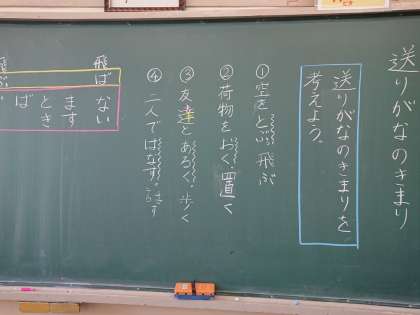 送りがなのきまり
送りがなのきまりを
考えよう。
①空をとぶ 飛ぶ
②荷物をおく。置く
③友達とあるく。歩く
④二人ではなす。話す
飛ばない
ます
とき
ば
飛ぶ。